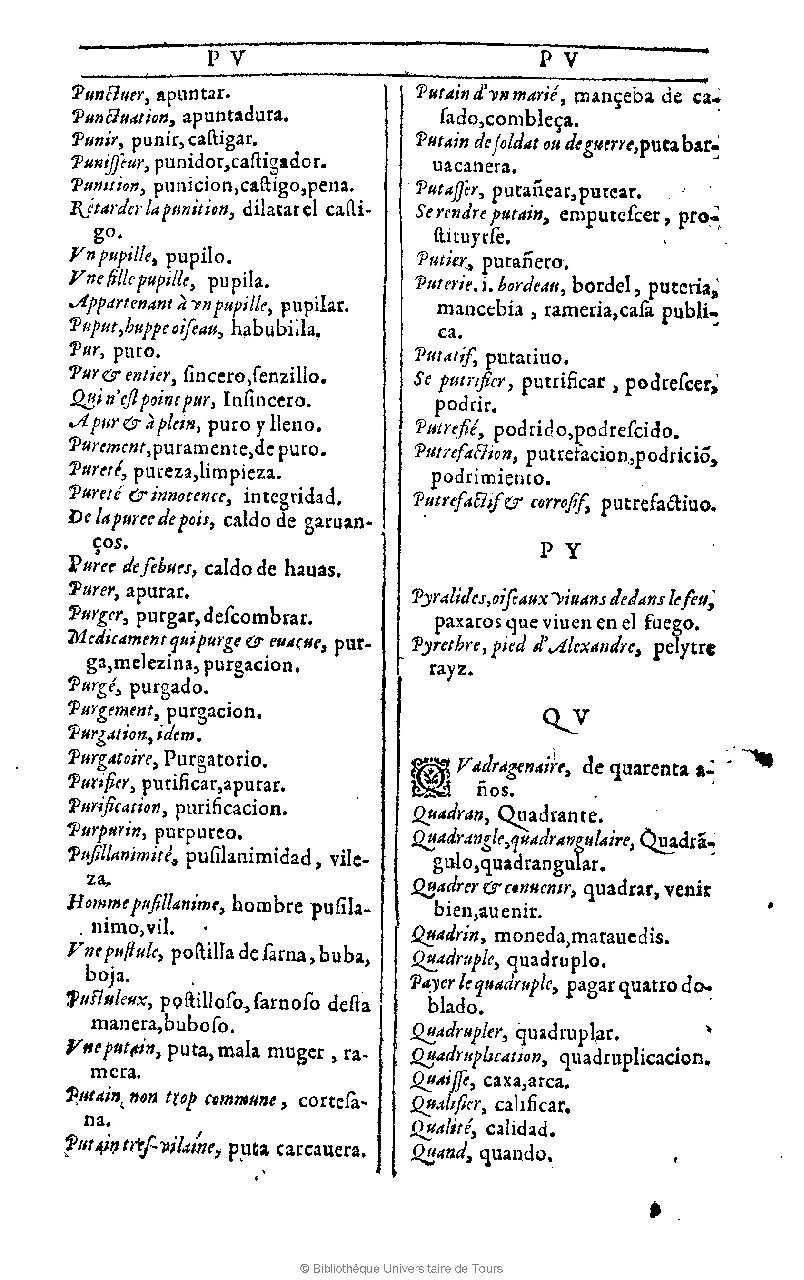 P V
P V
Punctuer, apuntar.
Punctuation, apuntadura.
Punir, punir, caſtigar.
Puniſſeur, punidor,caſtigador.
Punition, punicion,caſtigo,pena.
Retarder la punition, dilatar el caſti-
go.
Vn pupille, pupilo.
Vne fille pupille, pupila.
Appartenant à vn pupille, pupilar.
Puput,huppe oiſeau, habubilla.
Pur, puro.
Pur & entier, ſincero,ſenzillo.
Qui n'eſt point pur, Inſincero.
A pur & à plein, puro y lleno.
Purement,puramente,de puro.
Pureté, pureza,limpieza.
Pureté & innocence, integridad.
De la puree de pois, caldo de garuan-
ços.
Puree de febues, caldo de hauas.
Purer, apurar.
Purger, purgar, deſcombrar.
Medicament qui purge & euacue, pur-
ga,melezina, purgacion.
Purgé, purgado.
Purgement, purgacion.
Purgation, idem.
Purgatoire, Purgatorio.
Purifier, purificar,apurar.
Purification, purificacion.
Purpurin, purpureo.
Puſillanimité, puſilanimidad, vile-
za.
Homme puſillanime, hombre puſila-
nimo,vil.
Vne puſtule, poſtilla de ſarna, buba,
boja.
Puſtuleux, poſtilloſo, ſarnoſo deſta
manera,buboſo.
Vne putain, puta, mala muger, ra-
mera.
Putain non trop commune, corteſa-
na.
Putain treſ-vilaine, puta carcauera.
Putain d'vn marié, mançeba de ca-
ſado,combleça.
Putain de ſoldat ou de guerre,puta bar-
uacanera.
Putaſſer, putañear, putear.
Se rendre putain, emputeſcer, pro-
ſtituyrſe.
Putier, putañero.
Puterie. i. bordeau, bordel, puteria,
mancebia, rameria,caſa publi-
ca.
Putatif, putatiuo.
Se putrifier, putrificar, podreſcer,
podrir.
Putrefié, podrido,podreſcido.
Putrefaction, putrefacion,podriciõ,
podrimiento.
Putrefactif & corroſif, putrefactiuo.
P Y
Pyralides,oiſeaux viuans dedans le feu,
paxaros que viuen en el fuego.
Pyrethre, pied d'Alexandre, pelytre
rayz.
Q V
QVadragenaire, de quarenta a-
ños.
Quadran, Quadrante.
Quadrangle,quadrangulaire, Quadrã-
gulo,quadrangular.
Quadrer & conuenir, quadrar, venir
bien,auenir.
Quadrin, moneda,marauedis.
Quadruple, quadruplo.
Payer le quadruple, pagar quatro do-
blado.
Quadrupler, quadruplar.
Quadruplication, quadruplicacion.
Quaiſſe, caxa,arca.
Qualifier, calificar.
Qualité, calidad.
Quand, quando.
© Bibliothèque Universitaire de Tours